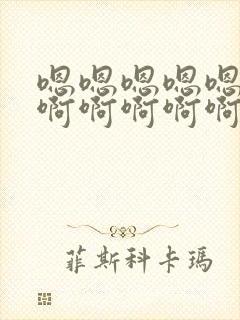 嗯嗯嗯嗯嗯
啊啊啊啊啊
菲斯科卡瑪